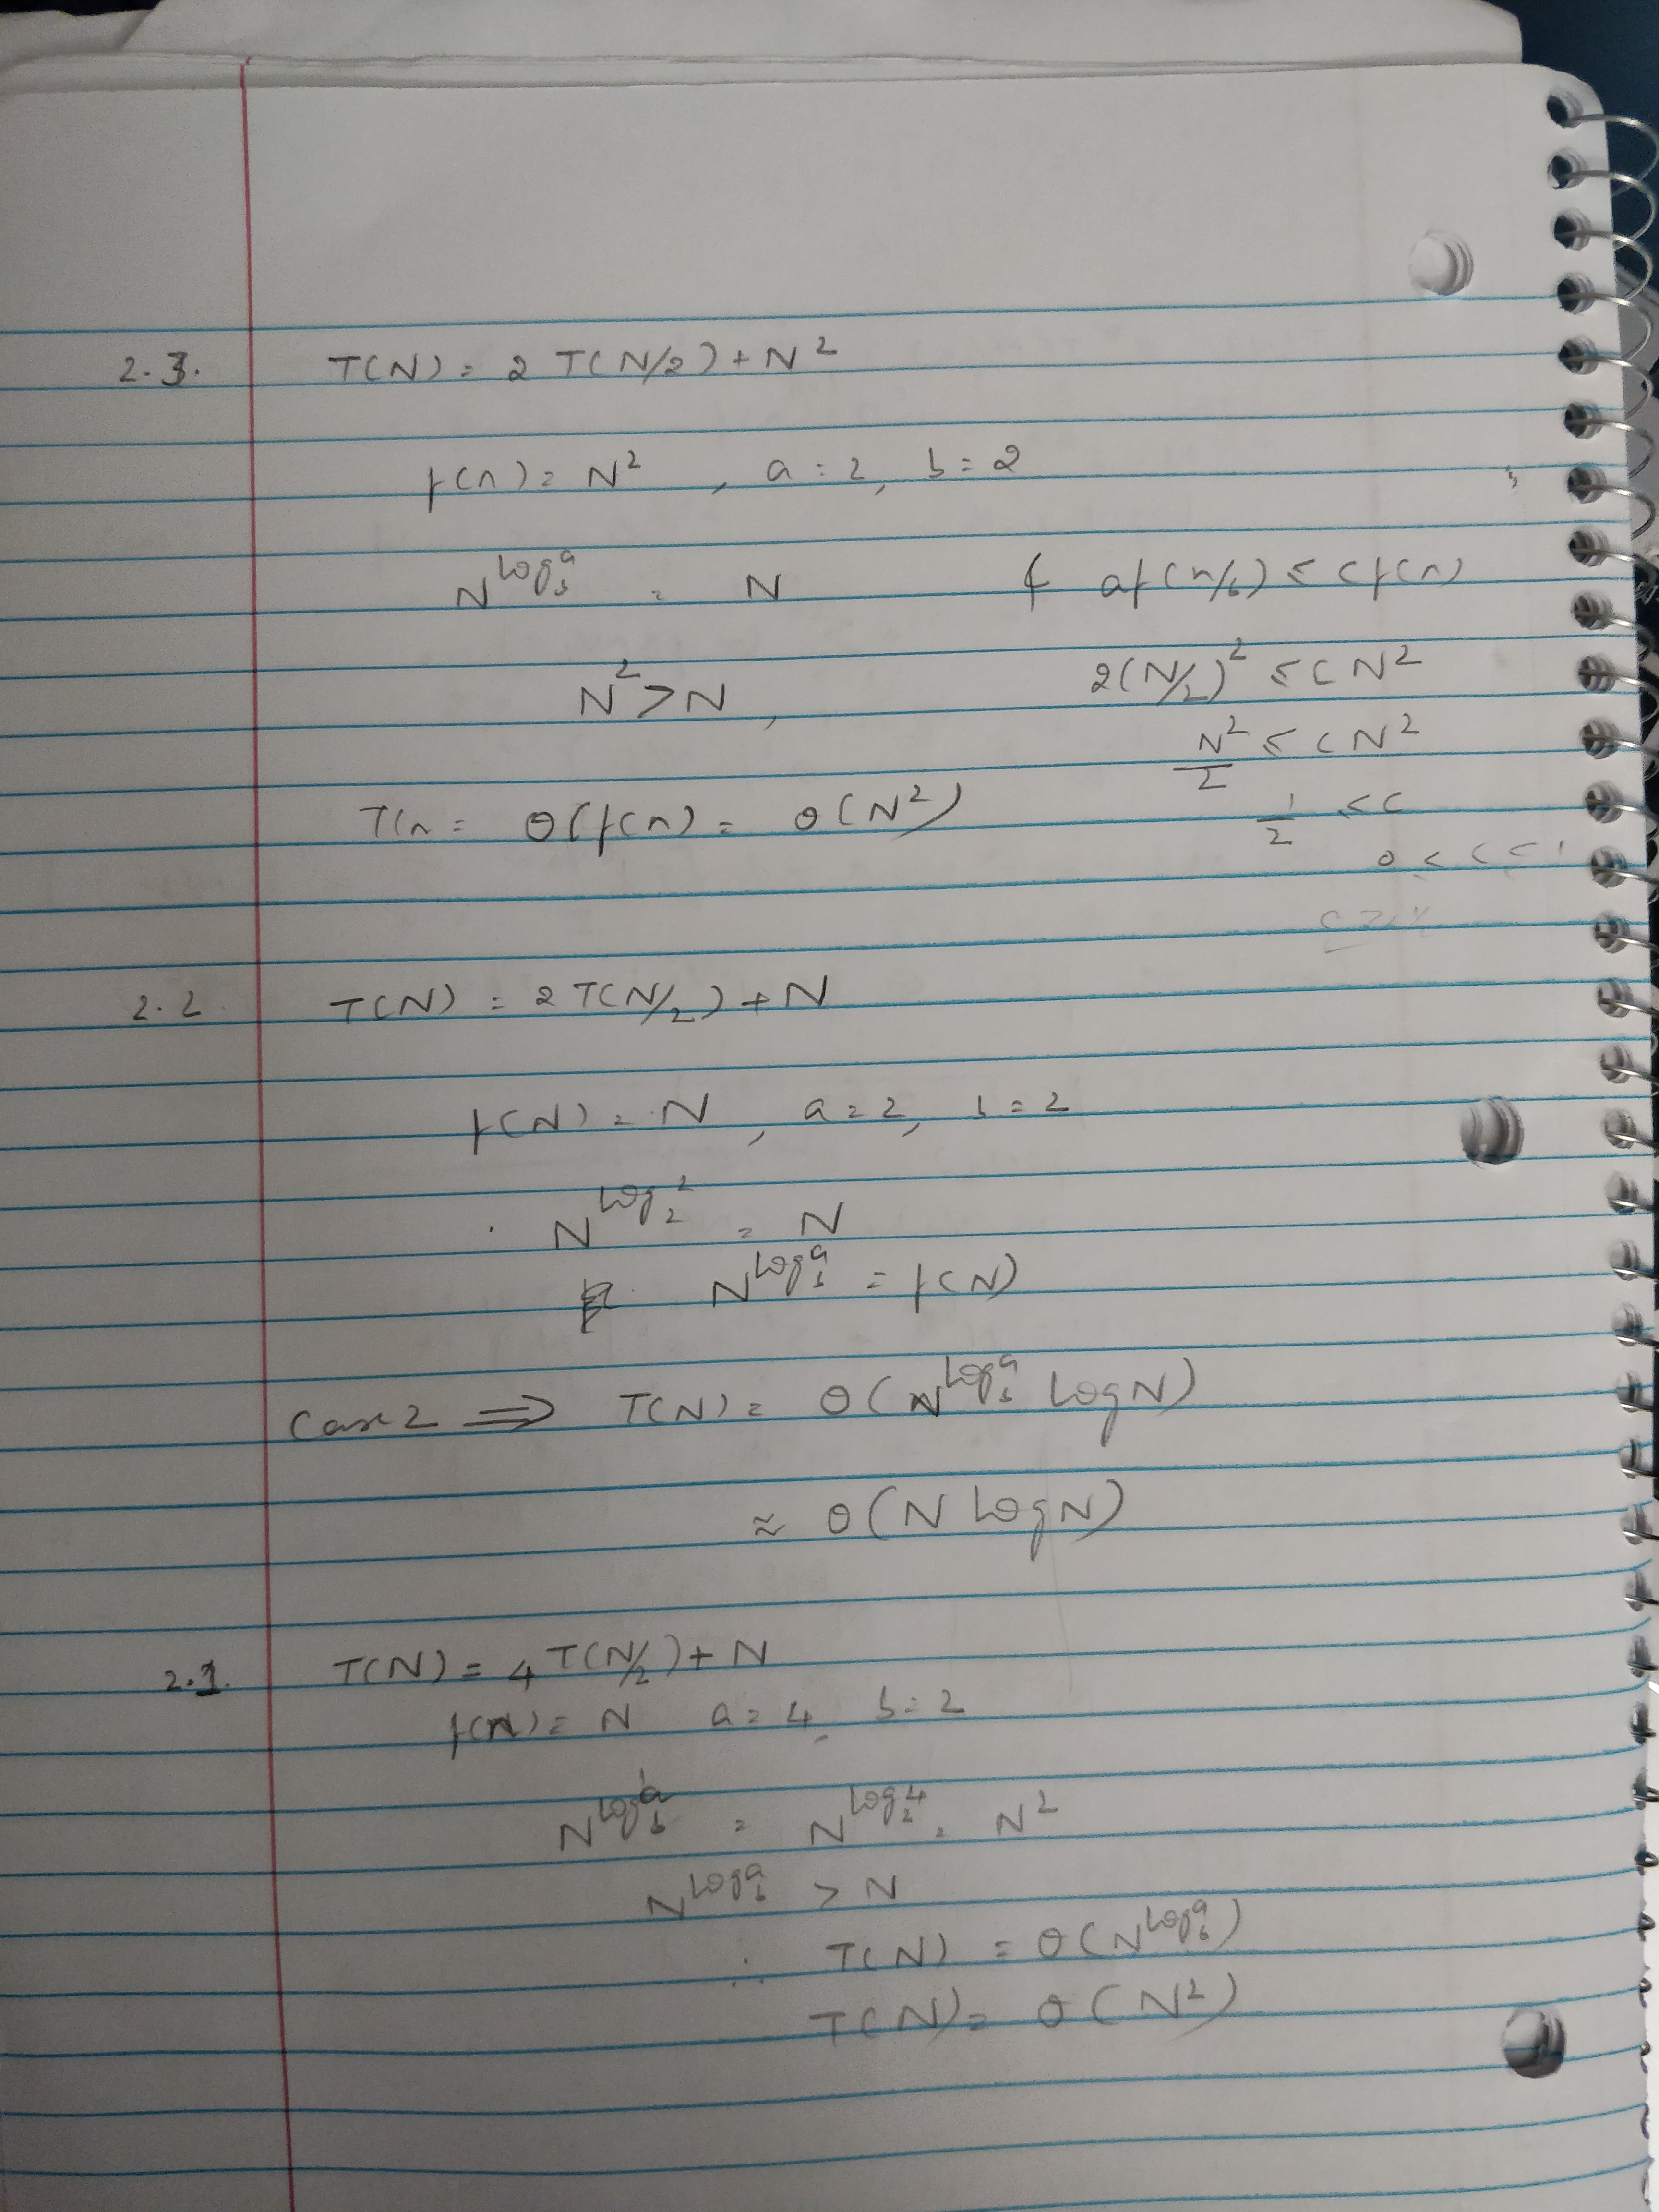 2.3. T(N) = 2 T(N/2) + N²
f(n) = N² , a = 2, b = 2
N^log_b^a = N & af(n/b) ≤ cf(n)
N² > N, 2(N/2)² ≤ CN²
N²/2 ≤ CN²
T(n = θ(f(n) = θ(N²) 1/2 ≤ C
0 < C < 1
2.2 T(N) = 2 T(N/2) + N
f(N) = N , a = 2, b = 2
N^log_2^2 = N
N^log_b^a = f(N)
Case 2 ⟹ T(N) = θ(N^log_b^a log N)
≈ θ(N log N)
2.1. T(N) = 4 T(N/2) + N
f(N) = N a = 4, b = 2
N^log_b^a = N^log_2^4 = N²
N^log_b^a > N
∴ T(N) = θ(N^log_b^a)
T(N) = θ(N²)